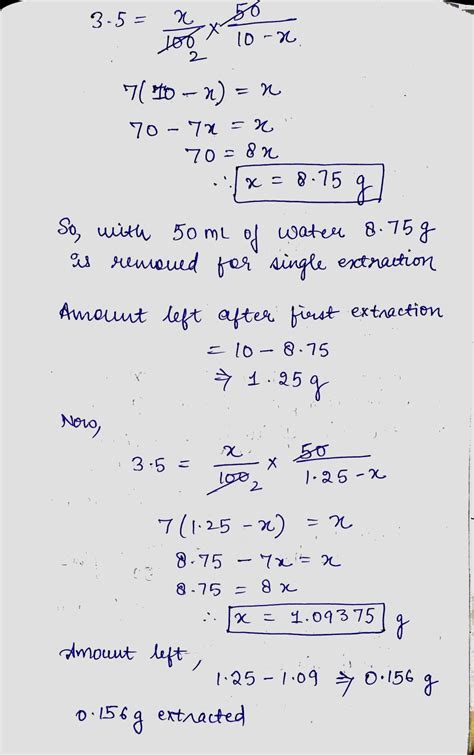 3.5 = x/100 2 × 50/10-x
7(10-x) = x
70 - 7x = x
70 = 8x
∴ x = 8.75 g
So, with 50 mL of water 8.75 g
is removed for single extraction
Amount left after first extraction
= 10 - 8.75
⇒ 1.25 g
Now,
3.5 = x/100 2 × 50/1.25-x
7(1.25-x) = x
8.75 - 7x = x
8.75 = 8x
∴ x = 1.09375 g
Amount left,
1.25 - 1.09 ⇒ 0.156 g
0.156 g extracted